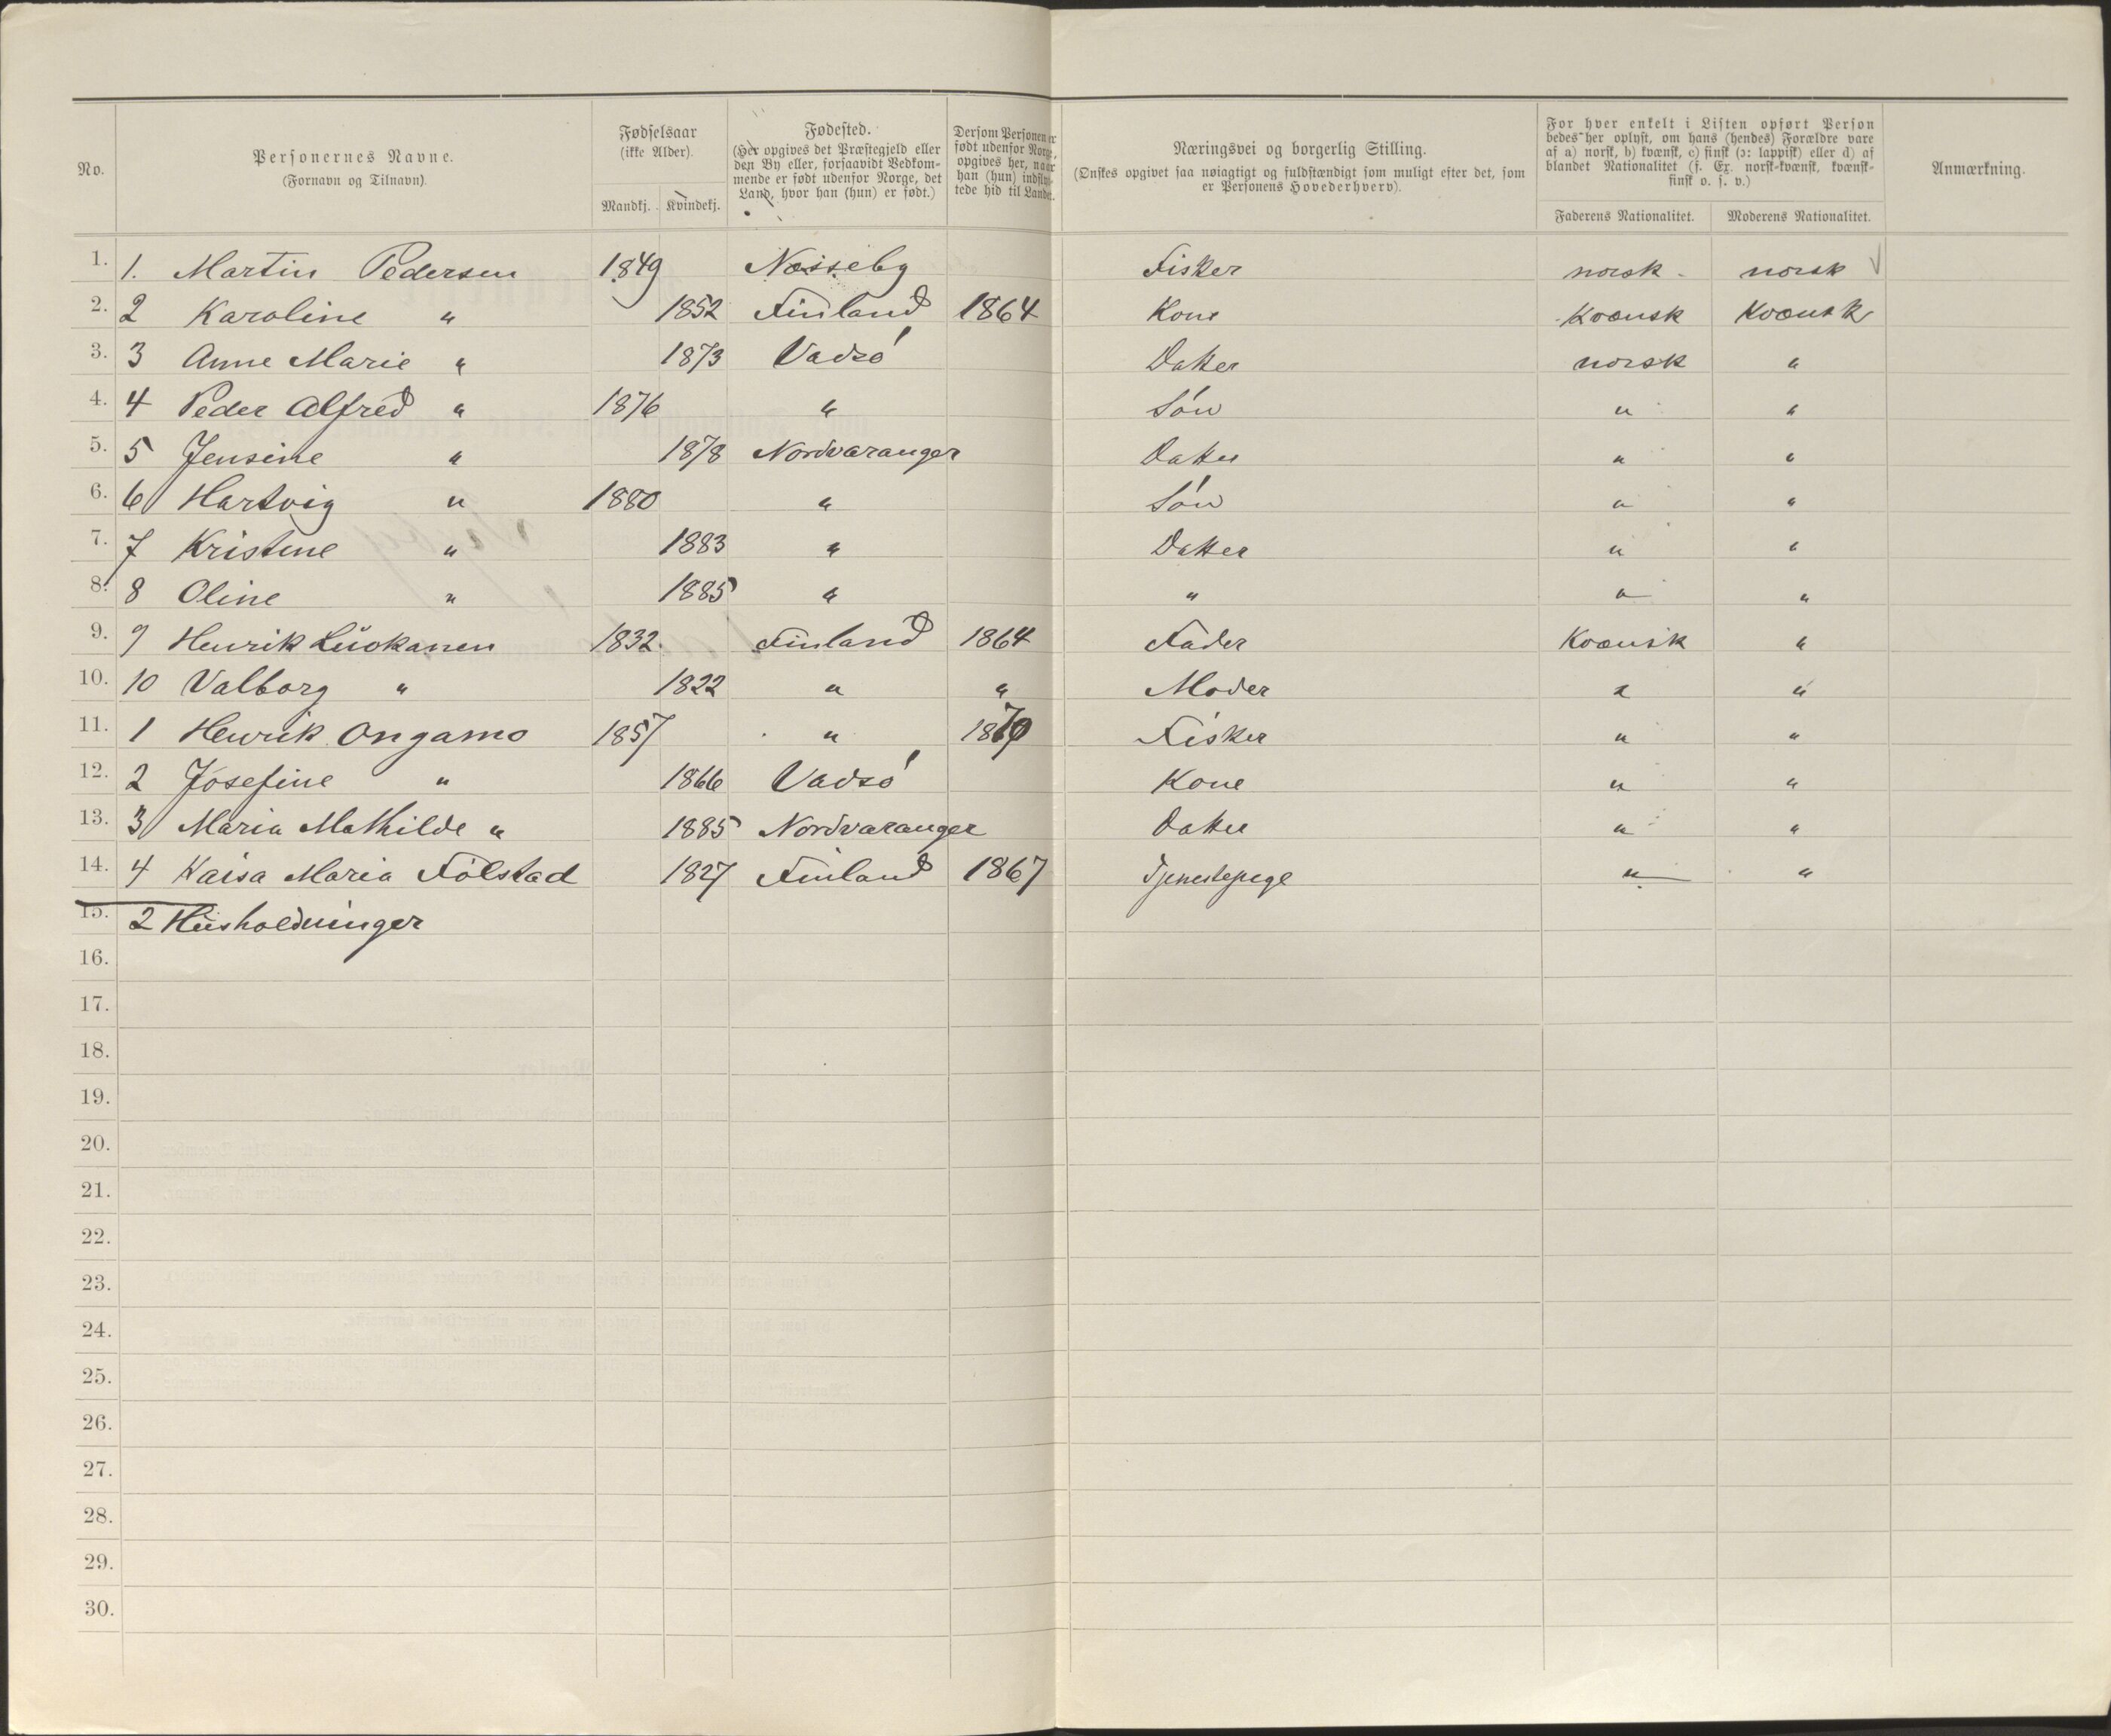 No.
Personernes Navne.
(Fornavn og Tilnavn).
Fødselsaar
(ikke Alder).
Mandkj. Kvindekj.
Fødested.
(Her opgives det Præstegjeld eller
den By eller, forsaavidt Vedkom-
mende er født udenfor Norge, det
Land, hvor han (hun) er født.)
Dersom Personen er
født udenfor Norge,
opgives her, naar
han (hun) indflyt-
tede hid til Landet.
Næringsvei og borgerlig Stilling.
(Ønskes opgivet saa nøiagtigt og fuldstændigt som muligt efter det, som
er Personens Hovederhverv).
For hver enkelt i Listen opført Person
bedes her oplyst, om hans (hendes) Forældre vare
af a) norsk, b) kvænsk, c) finsk (ɔ: lappisk) eller d) af
blandet Nationalitet (f. Ex. norsk-kvænsk, kvænsk-
finsk o. s. v.)
Faderens Nationalitet. Moderens Nationalitet.
Anmærkning.
1. 1. Martin Pedersen 1849 Næsseby Fisker norsk norsk
2. 2 Karoline " 1852 Finland 1864 Kone Kvænsk Kvænsk
3. 3 Anne Marie " 1873 Vadsö Datter norsk "
4. 4 Peder Alfred " 1876 " Sön " "
5. 5 Jensine " 1878 Nordvaranger Datter " "
6. 6 Hartvig " 1880 " Sön " "
7. 7 Kristine " 1883 " Datter " "
8. 8 Oline " 1885 " " " "
9. 9 Henrik 1832 Finland 1864 Fader Kvænsk "
10. 10 Valborg " 1822 " " Moder " "
11. 1 Henrik Ongamo 1857 " Fisker " "
12. 2 Josefine " 1866 Vadsö Kone " "
13. 3 Maria Mathilde " 1885 Nordvaranger Datter " "
14. 4 Kaisa Maria Fölstad 1827 Finland 1867 Tjenestepige " "
15. 2 Husholdninger
16.
17.
18.
19.
20.
21.
22.
23.
24.
25.
26.
27.
28.
29.
30.